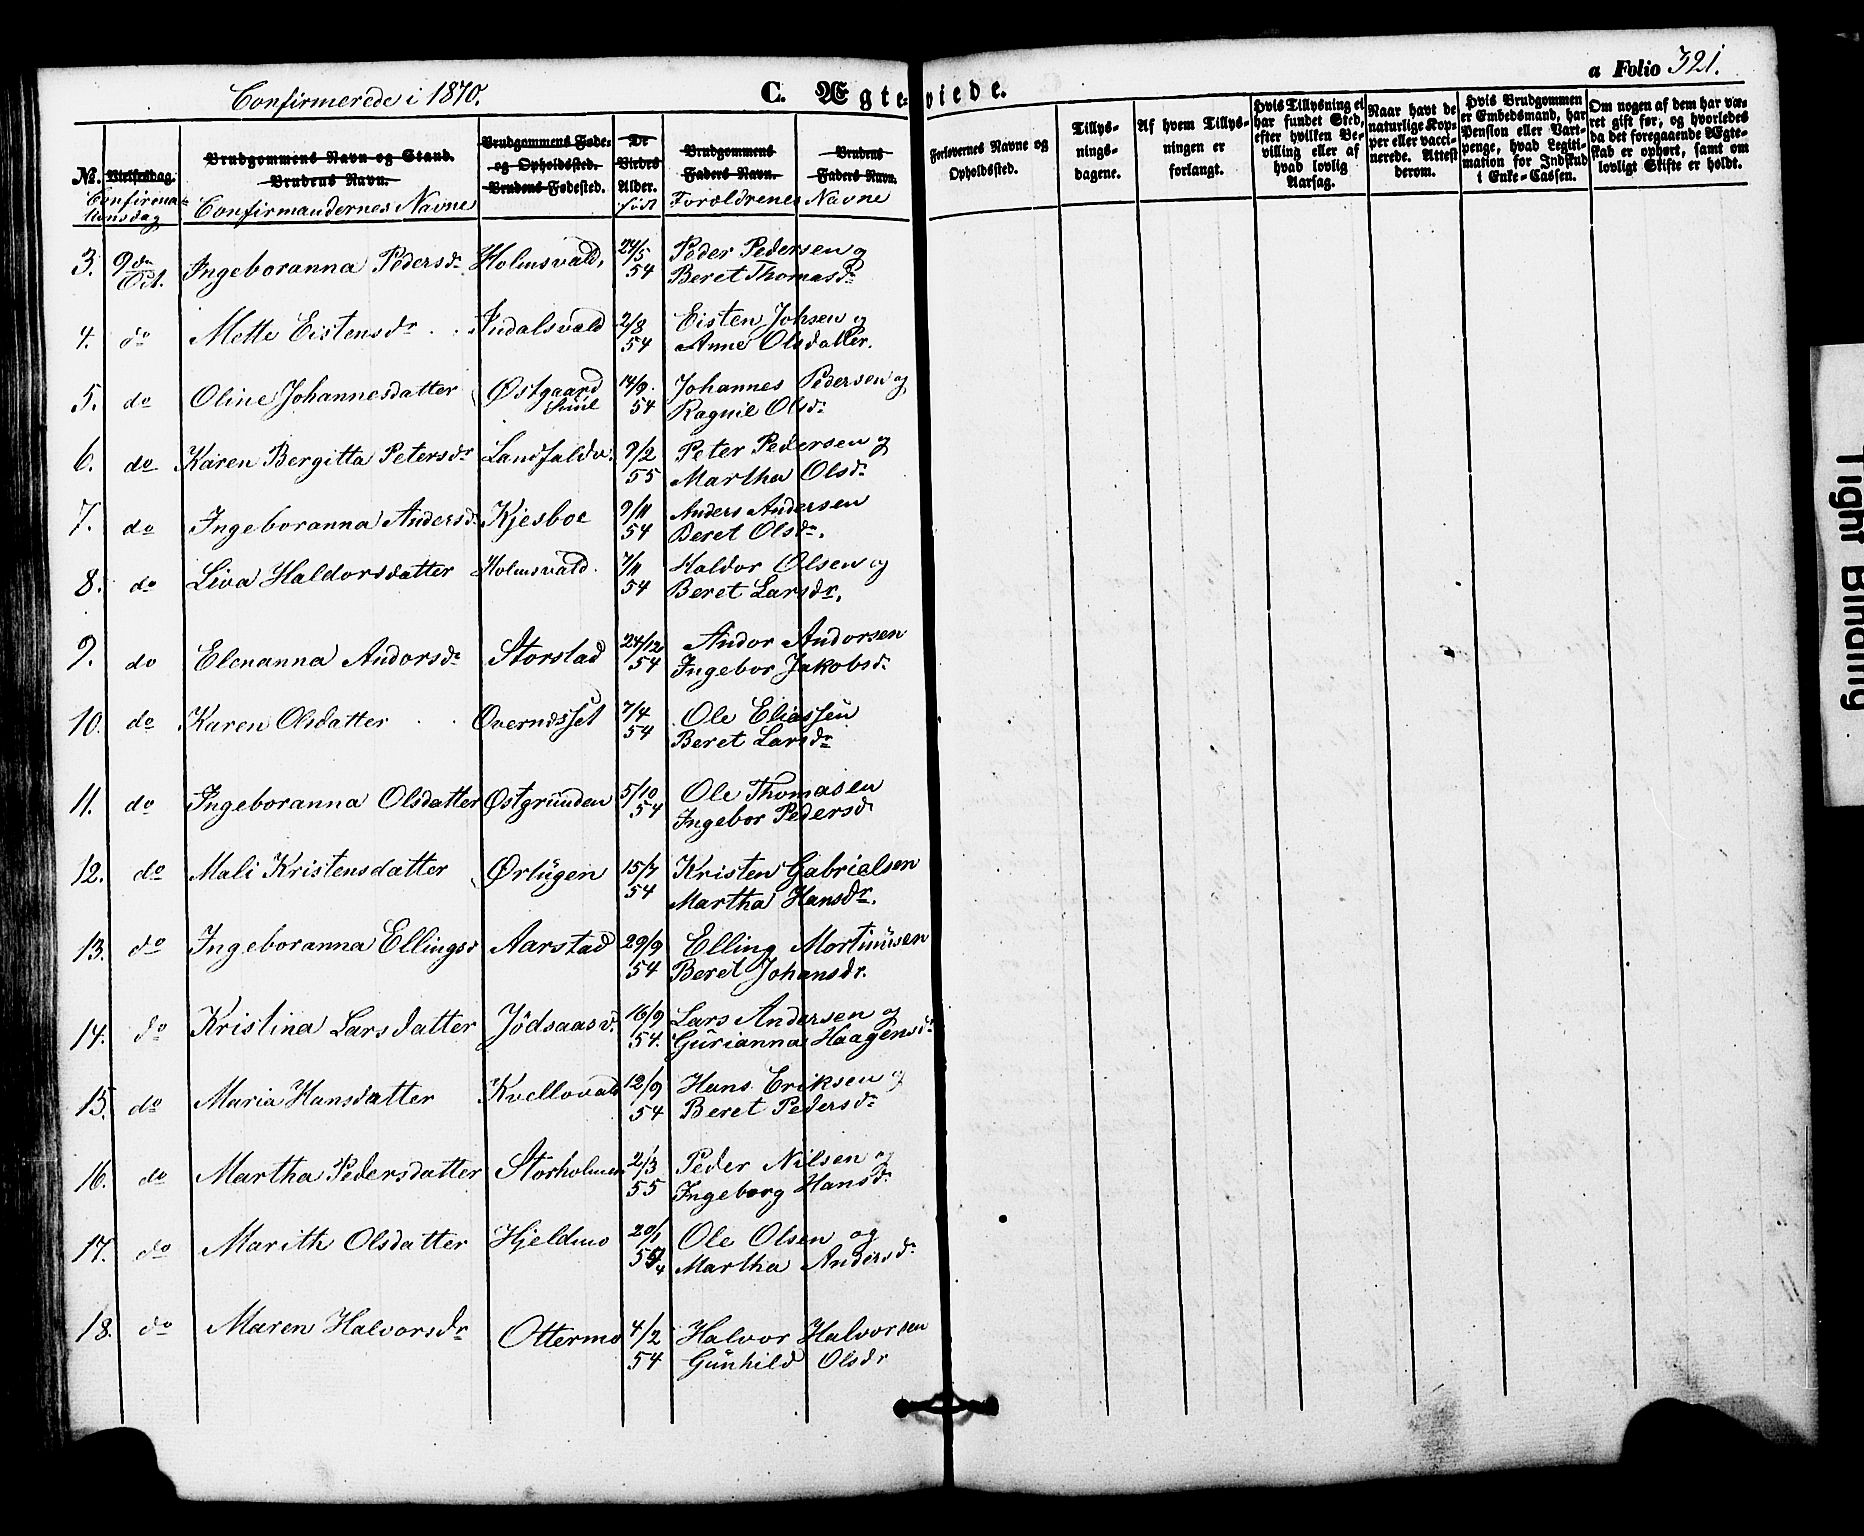 Confirmerede i 1870.
C. Ægteviede.
a Folio 321.
No.
Vielsesdag.
Confirmationsdag
Brudgommens Navn og Stand.
Brudens Navn.
Confirmandernes Navne
Brudgommens Føde- og Opholdssted.
Brudens Fødested.
De Viedes Alder.
født
Brudgommens Faders Navn.
Brudens Faders Navn.
Forældrenes Navne
Forlovernes Navne og Opholdssted.
Tillysningsdagene.
Af hvem Tillysningen er forlangt.
Hvis Tillysning ei har fundet Sted, efter hvilken Bevilling eller af hvad lovlig Aarsag.
Naar havt de naturlige Kopper eller vaccinerede. Attest derom.
Hvis Brudgommen er Embedsmand, har Pension eller Vartpenge, hvad Legitimation for Indskud i Enke-Cassen.
Om nogen af dem har været gift før, og hvorledes da det foregaaende Ægteskab er ophørt, samt om lovligt Skifte er holdt.
3. 9de Oct. Ingeboranna Pedersdr Holmsvald, 24/5 54 Peder Pedersen og
Beret Thomasdr
4. do Mette Eistensdr Indalsvald 2/8 54 Eisten Johsen og
Anne Olsdatter.
5. do Oline Johannesdatter Østgaard 14/9 54 Johannes Pedersen og
Ragnil Olsdr
6. do Karen Bergitta Petersdr Landfaldv. 9/2 55 Peter Pedersen og
Martha Olsdr
7. do Ingeboranna Andersd. Kjesboe 9/11 54 Anders Andersen
Beret Olsdr.
8. do Liva Haldorsdatter Holmsvald. 7/11 54 Haldor Olsen og
Beret Larsdr.
9. do Elenanna Andorsdr Storstad 24/12 54 Andor Andorsen
Ingebor Jakobsd.
10. do Karen Olsdatter Overndsset 7/4 54 Ole Eliassen
Beret Larsdr
11. do Ingeboranna Olsdatter Østgrunden 5/10 54 Ole Thomasen
Ingebor Pedersd
12. do Mali Kristensdatter Ørtugen 15/7 54 Kristen Gabrielsen
Martha Hansdr.
13. do Ingeboranna Ellingsd Aarstad 29/9 54 Elling Mortinusen
Beret Johansdr.
14. do Kristina Larsdatter Jødsaasv. 16/9 54. Lars Andersen og
Gurianna Haagensd.
15. do Maria Hansdatter Kvellovald 12/9 54 Hans Eriksen og
Beret Pedersdr
16. do Martha Pedersdatter Storholmen 2/3 55 Peder Nilsen og
Ingeborg Hansd.
17. do Marith Olsdatter Hjeldmo 20/1 54 Ole Olsen og
Martha Andersd.
18. do Maren Halvorsdr Ottermo 4/2 54 Halvor Halvorsen
Gunhild Olsdr
Tight Binding